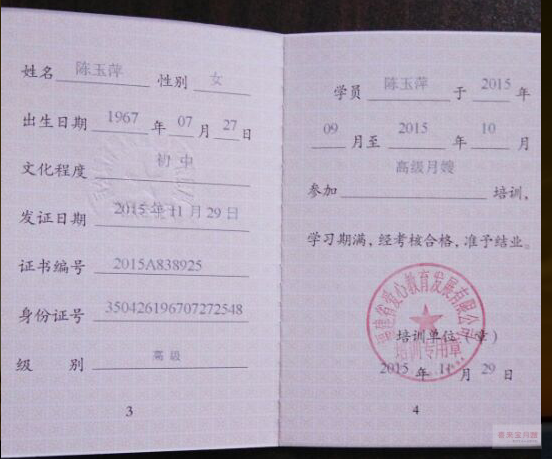 姓名 陈玉萍 性别 女
出生日期 1967 年 07 月 27 日
文化程度 初中
发证日期 2015年11月29日
证书编号 2015A838925
身份证号 350426196707272548
级 别 高级
3
学员 陈玉萍 于 2015 年
09 月至 2015 年 10 月
参加 高级月嫂 培训,
学习期满,经考核合格,准予结业。
福建省爱心教育发展有限公司
培训单位(章)
培训专用章
2015 年 11 月 29 日
4